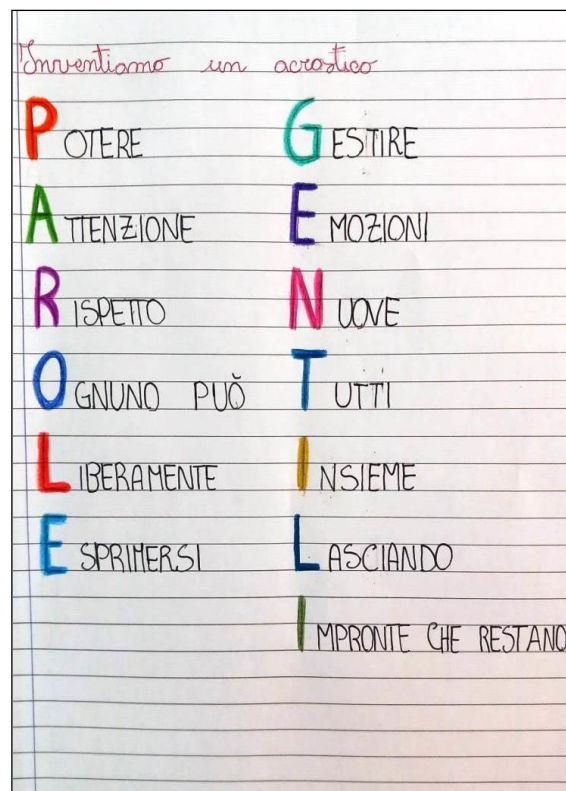 Inventiamo un acrostico
POTERE
ATTENZIONE
RISPETTO
OGNUNO PUÒ
LIBERAMENTE
ESPRIMERSI
GESTIRE
EMOZIONI
NUOVE
TUTTI
INSIEME
LASCIANDO
IMPRONTE CHE RESTANO